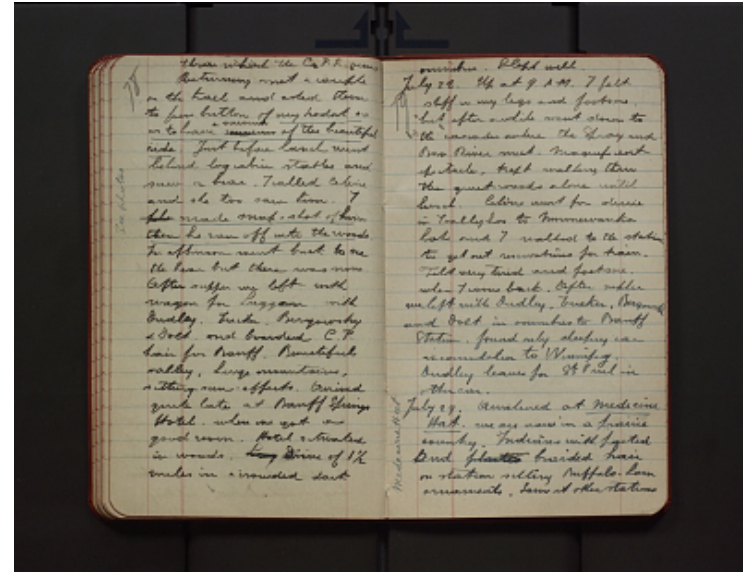 78
through which the C.P.R. passes
Returning met a couple
on the trail and asked them
to press button of my kodak so
as to have souvenir of the beautiful
ride. Just before lunch went
behind log cabin stables and
saw a bear. I called Celine
and she too saw him. I
made snap-shot of him
then he ran off into the woods.
In afternoon went back to see
the bear but there was none
After supper we left with
wagon for Laggan with
Dudley, Tucker,
& Dolt and boarded C.P.
train for Banff. Beautiful
valley, huge mountains,
setting sun effects. Arrived
quite late at Banff Springs
Hotel. where we got a
good room. Hotel situated
in woods. Drive of 1½
miles in crowded sort
See photos
79
omnibus. Slept well.
July 28. Up at 9 A.M. I felt
stiff in my legs and footsore.
but after a while went down to
the cascades where the Spray and
Bow River meet. Magnificent
spectacle. Kept walking thru
the quiet woods alone until
lunch. Celine went for drive
in Tallyho to Minnewanka
lake and I walked to the station
to get out reservations for train.
Felt very tired and footsore.
when I came back. After supper
we left with Dudley, Tucker,
and Dolt in omnibus to Banff
Station. found only sleeping car
accomodation to Winnipeg.
Dudley leaves for St Paul in
other car.
July 29. Awakened at Medicine
Hat. we are now in a prairie
country. Indians with painted
and braided hair
on station selling Buffalo-horn
ornaments. Saw at other stations
Medicine Hat